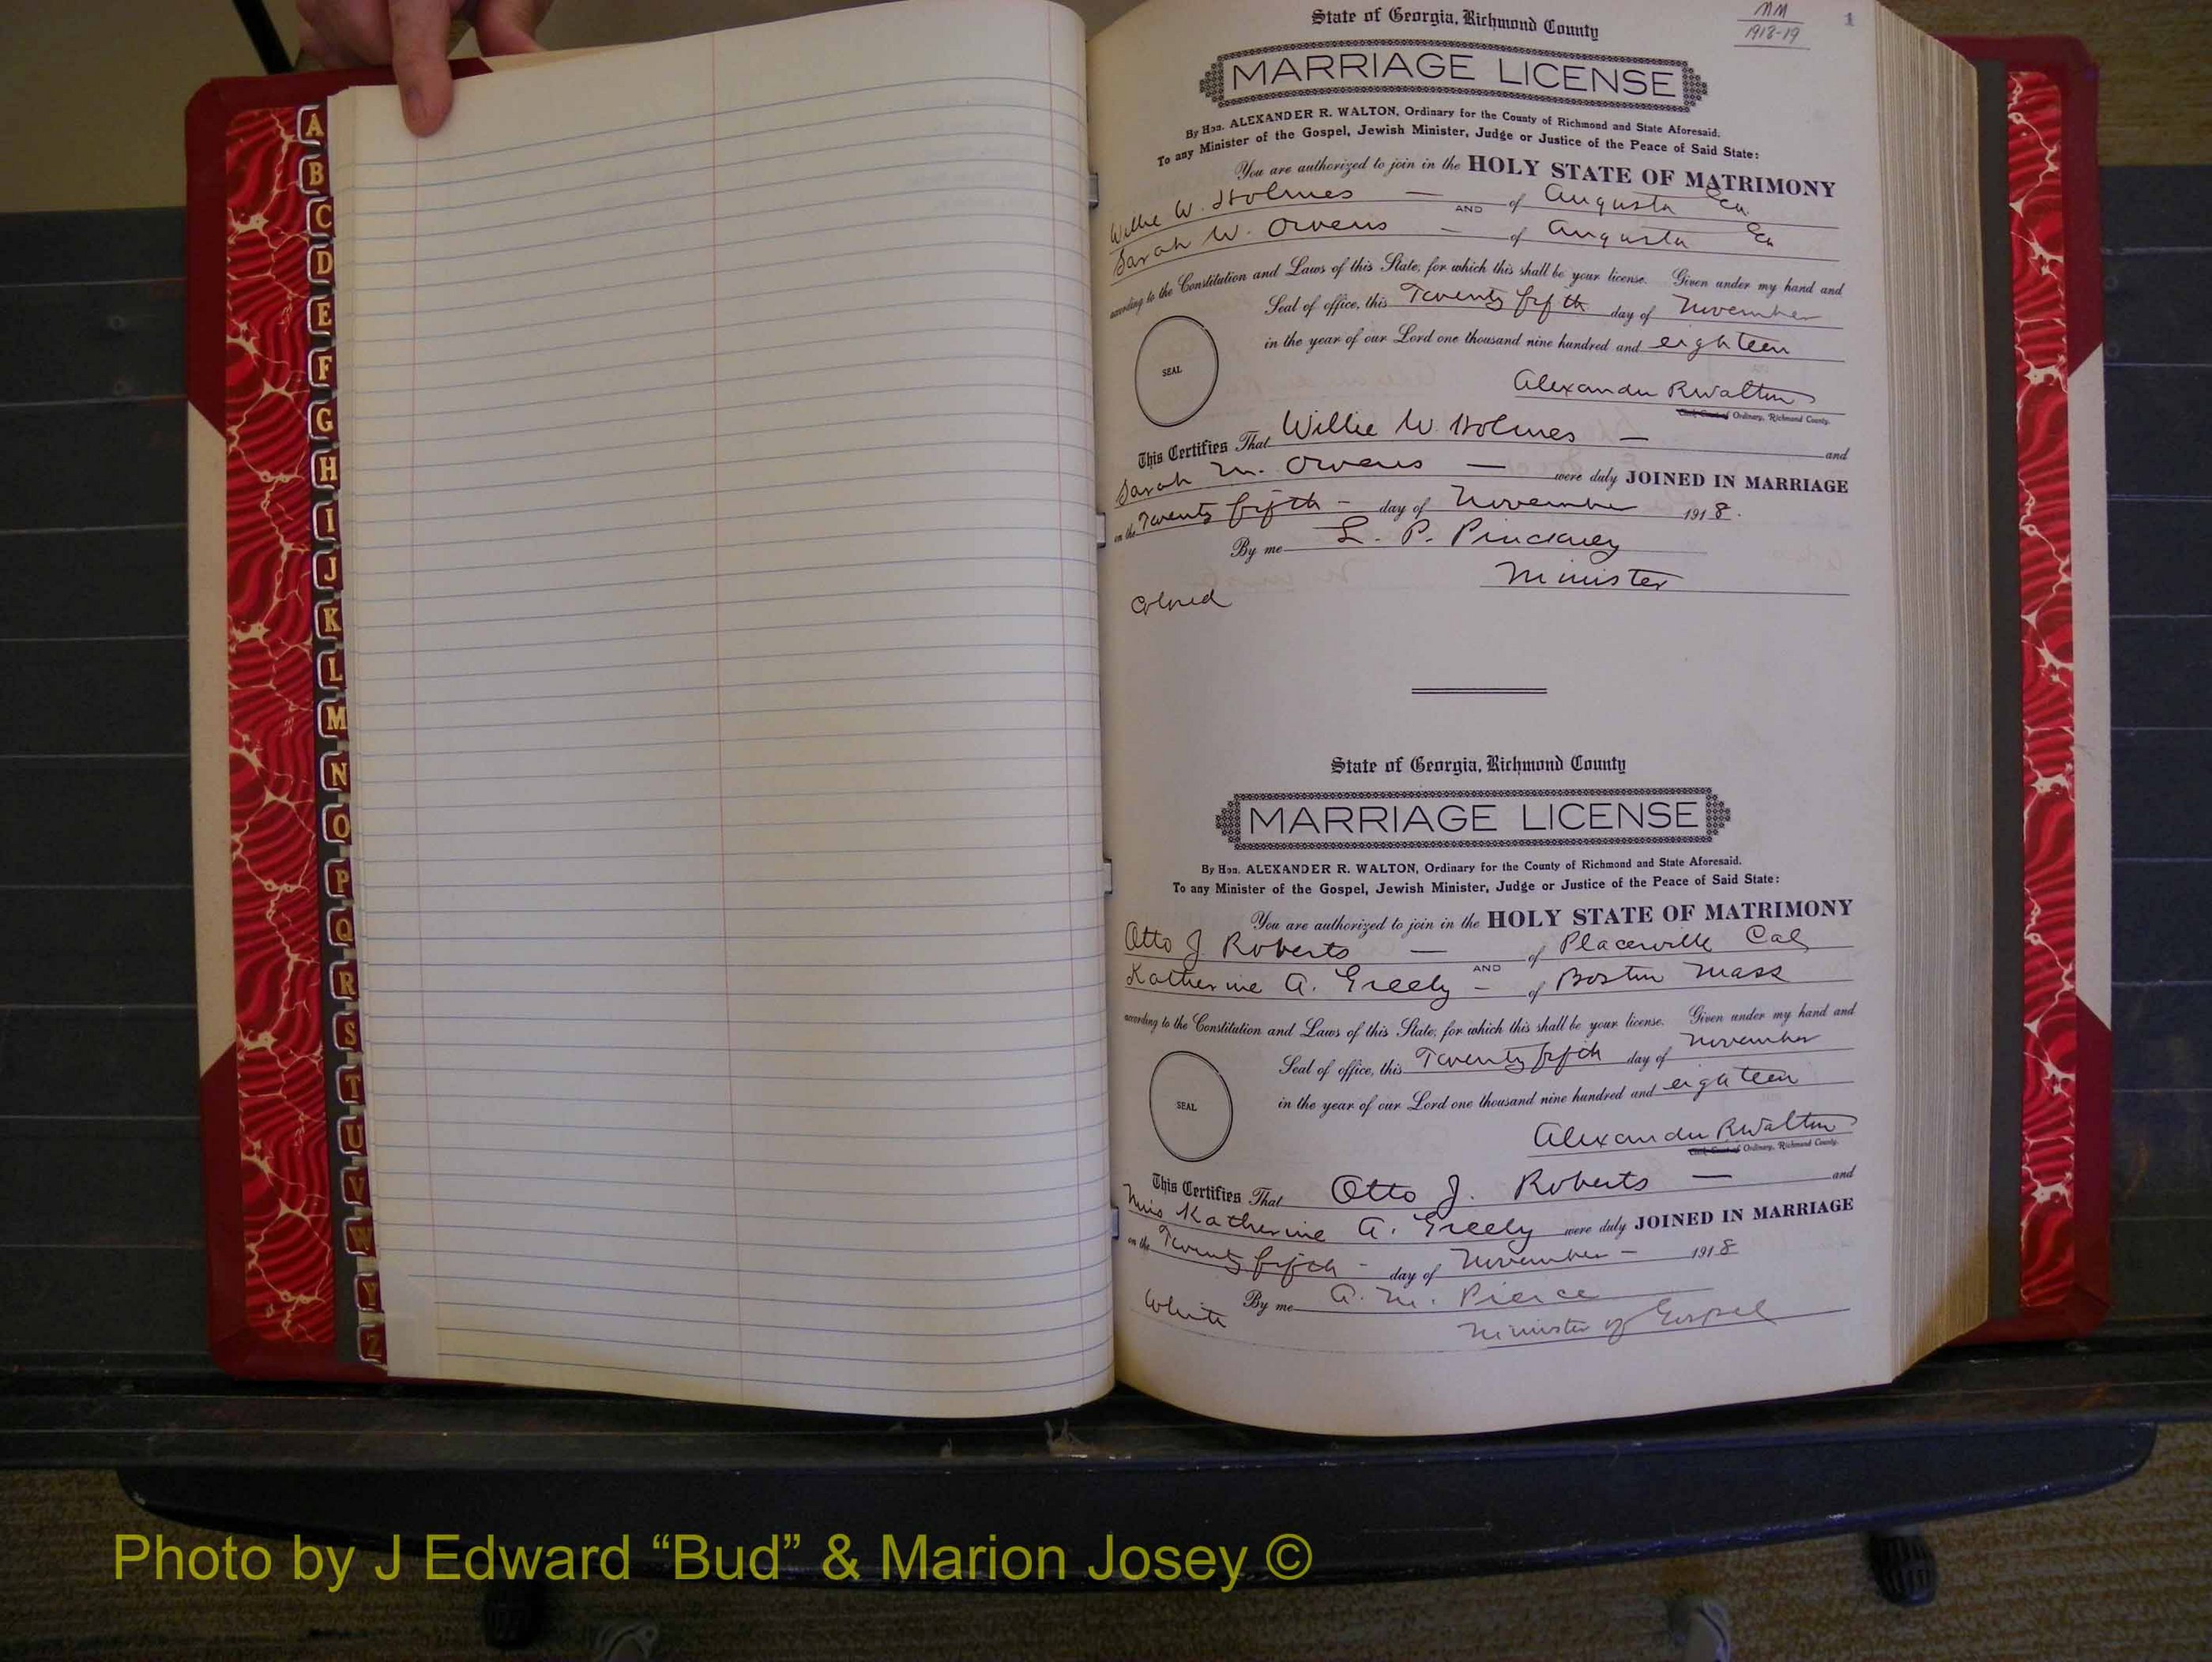 A
B
C
D
E
F
G
H
I
J
K
L
M
N
O
P
Q
R
S
T
U
V
W
Y
Z
MM
1918-19
1
State of Georgia, Richmond County
MARRIAGE LICENSE
By Hon. ALEXANDER R. WALTON, Ordinary for the County of Richmond and State Aforesaid.
To any Minister of the Gospel, Jewish Minister, Judge or Justice of the Peace of Said State:
You are authorized to join in the HOLY STATE OF MATRIMONY
Willie W. Holmes — of Augusta Ga.
AND
Sarah W. Owens - of Augusta Ga
according to the Constitution and Laws of this State, for which this shall be your license. Given under my hand and
Seal of office, this Twenty fifth day of November
in the year of our Lord one thousand nine hundred and eighteen
SEAL
Alexander R Walton
Clerk Court of Ordinary, Richmond County.
This Certifies That Willie W. Holmes — and
Sarah M. Owens — were duly JOINED IN MARRIAGE
on the Twenty fifth - day of November 1918.
By me L. P. Pinckney
Minister
Colored
State of Georgia, Richmond County
MARRIAGE LICENSE
By Hon. ALEXANDER R. WALTON, Ordinary for the County of Richmond and State Aforesaid.
To any Minister of the Gospel, Jewish Minister, Judge or Justice of the Peace of Said State:
You are authorized to join in the HOLY STATE OF MATRIMONY
Otto J. Roberts — of Placerville Cal
AND
Katherine A. Greely - of Boston Mass
according to the Constitution and Laws of this State, for which this shall be your license. Given under my hand and
Seal of office, this Twenty fifth day of November
in the year of our Lord one thousand nine hundred and eighteen
SEAL
Alexander R Walton
Clerk Court of Ordinary, Richmond County.
This Certifies That Otto J. Roberts — and
Miss Katherine A. Greely were duly JOINED IN MARRIAGE
on the Twenty fifth - day of November - 1918
By me A. M. Pierce
White
Minister of Gospel
Photo by J Edward “Bud” & Marion Josey ©